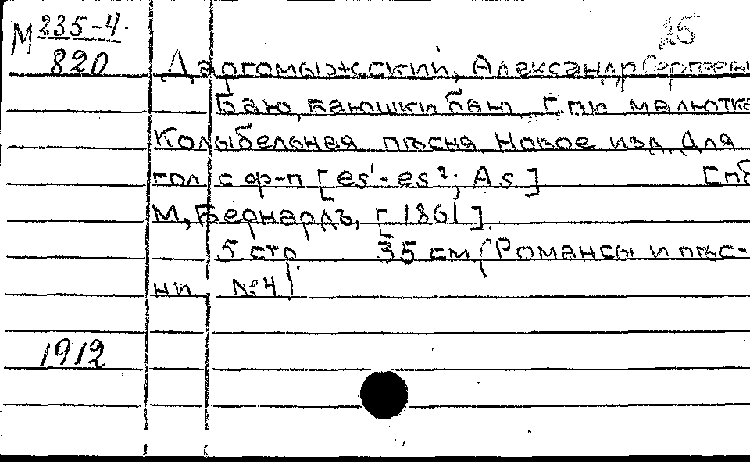 М 235-4
820
25
Даргомыжский, Александр Сергееви
Баю, баюшки баю. Спи малютка
Колыбельная пѣсня. Новое изд. Для
гол с ф-п [es¹-es²; As] Спб
М, Бернардъ, [1861].
5 стр 35 см. (Романсы и пѣс-
ни №4)
1912